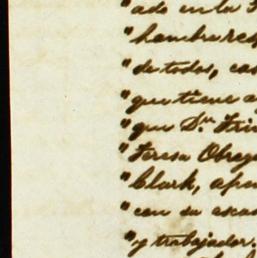 "ado en la
"hombre res
"de todos, cas
"que tiene a
"que Dn. Tri
"Teresa Obreg
"Clark, apen
"con su esca
"y trabajador.